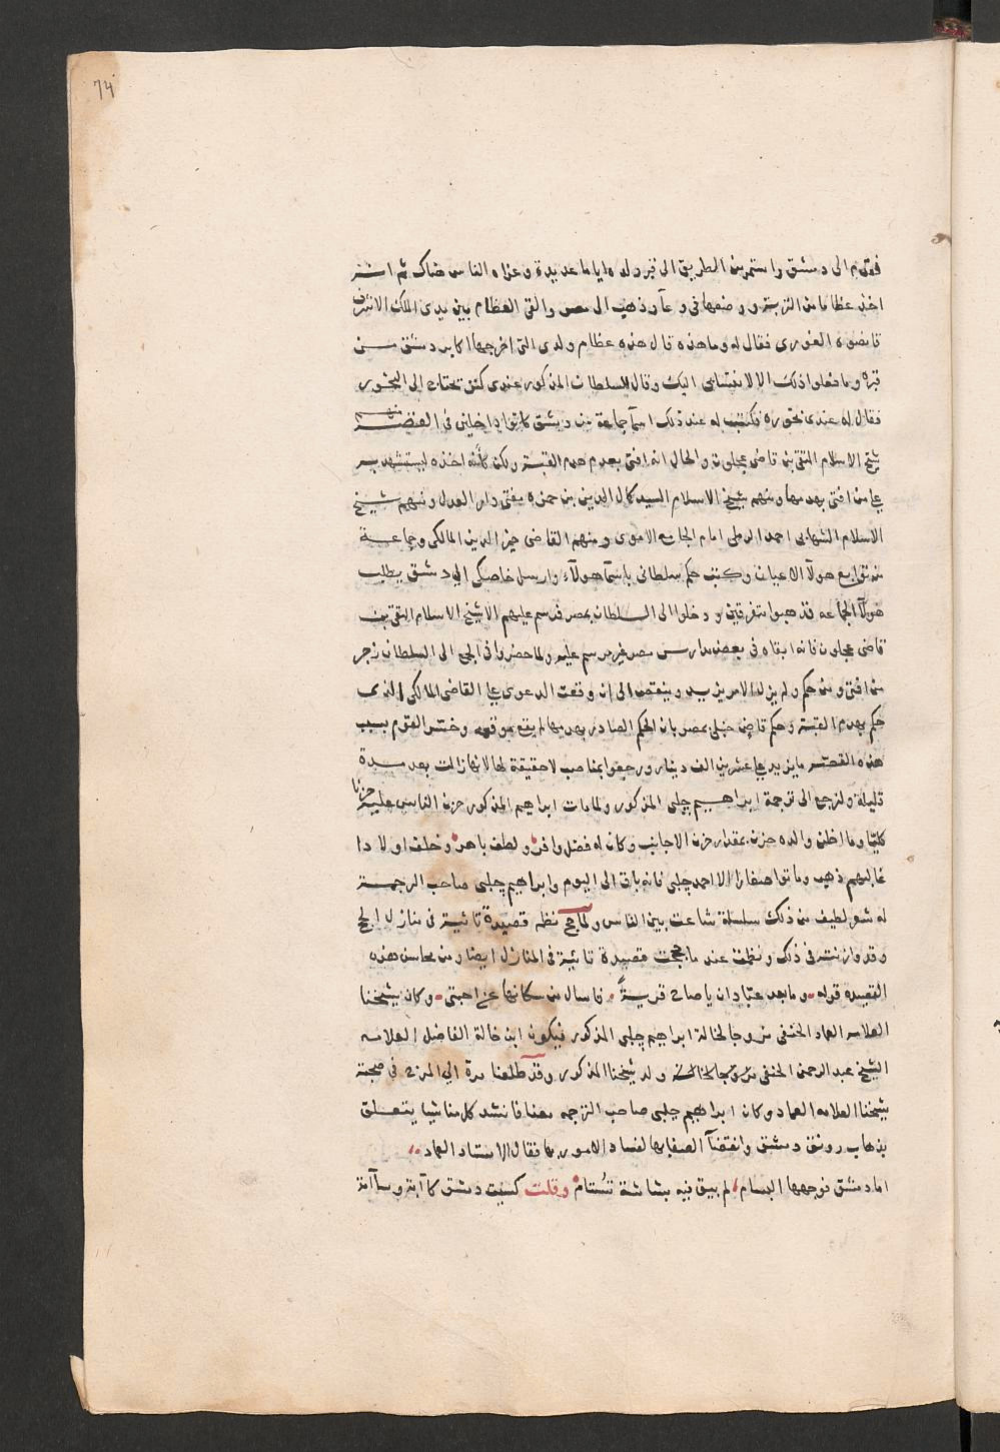 74
فقدم الى دمشق واستمر من الطريق الى قبر ولده اياما عديدة وعزاه الناس هناك ثم انه
اخذ عظاما من التربة ووضعها في وعآ وذهب الى مصر والقى العظام بين يدي الملك الاشرف
قانصوه الغوري فقال له وما هذه قال هذه عظام ولدي التي اخرجها اكابر دمشق من
قبره وما فعلوا ذلك الا لانتسابي اليك وقال السلطان المذكور عندي كنت تحتاج الى البخور
فقال له عندي بخوره فكتب له عند ذلك اسمآ جماعة من دمشق كانوا داخلين في القضية منهم
شيخ الاسلام التقي بن قاضي عجلون والحال انه افتى بعدم هدم القبة ولكن كأنه اخذه ليستشهد به
على من افتى بهدمها ومنهم شيخ الاسلام السيد كمال الدين بن حمزه مفتي دار العدل ومنهم شيخ
الاسلام الشهابي احمد الرملي امام الجامع الاموي ومنهم القاضي خير الدين المالكي وجماعة
من توابع هولآ الاعيان وكتب حكم سلطاني باسمآ هولآء وارسل خاصكي الى دمشق يطلب
هولآ الجماعه فذهبوا متفرقين ودخلوا الى السلطان بمصر فرسم عليهم الا شيخ الاسلام التقي بن
قاضي عجلون فانه ابقاه في بعض مدارس مصر غير مرسم عليه ولما حضروا في الجمع الى السلطان زجر
من افتى ومن حكم ولم يزل الامر يزيد وينقص الى ان وقعت الدعوى على القاضي المالكي الذي
حكم بهدم القبة وحكم قاض حنبلي بمصر بان الحكم الصادر بهدمها لم يقع موقعه وخسر القوم بسبب
هذه القصة ما يزيد على عشرين الف دينار ورجعوا بمناصب لا حقيقة لها لانها زالت بعد مدة
قليلة ولنرجع الى ترجمة ابراهيم چلبي المذكور ولما مات ابراهيم المذكور حزن الناس عليه حزنا
كليا وما اظن والده حزن بمقدار حزن الاجانب وكان له فضل وافر ولطف باهر وخلف اولادا
غالبهم ذهب وماتوا صغارا الا احمد چلبي فانه باق الى اليوم وابراهيم چلبي صاحب الترجمة
له شعر لطيف من ذلك سلسلة شاعت بين الناس ولما حج نظم قصيدة تائية في منازل الحج
وقد وازنته في ذلك ونظمت عند ما حججت قصيدة تائية في المنازل ايضا ومن محاسن هذه
القصيده قوله وما بعد عبادان يا صاح قرية فاسال من سكانها عن احبتي وكان شيخنا
العلامه العماد الحنفي متزوجا لخالة ابراهيم چلبي المذكور فيكون ابن خالة الفاضل العلامه
الشيخ عبد الرحمن الحنفي ولد شيخنا المذكور وقد طلعنا مرة الى المرج في صحبة
شيخنا العلامه العماد وكان ابراهيم چلبي صاحب الترجمه معنا فانشد كل منا شيا يتعلق
بذهاب رونق دمشق وانقضآ الصفا بها لفساد الامور بها فقال الاستاد العماد
اما دمشق فوجهها البسام لم يبق فيه بشاشة تستام وقلت كسيت دمشق كآبة وسآمة